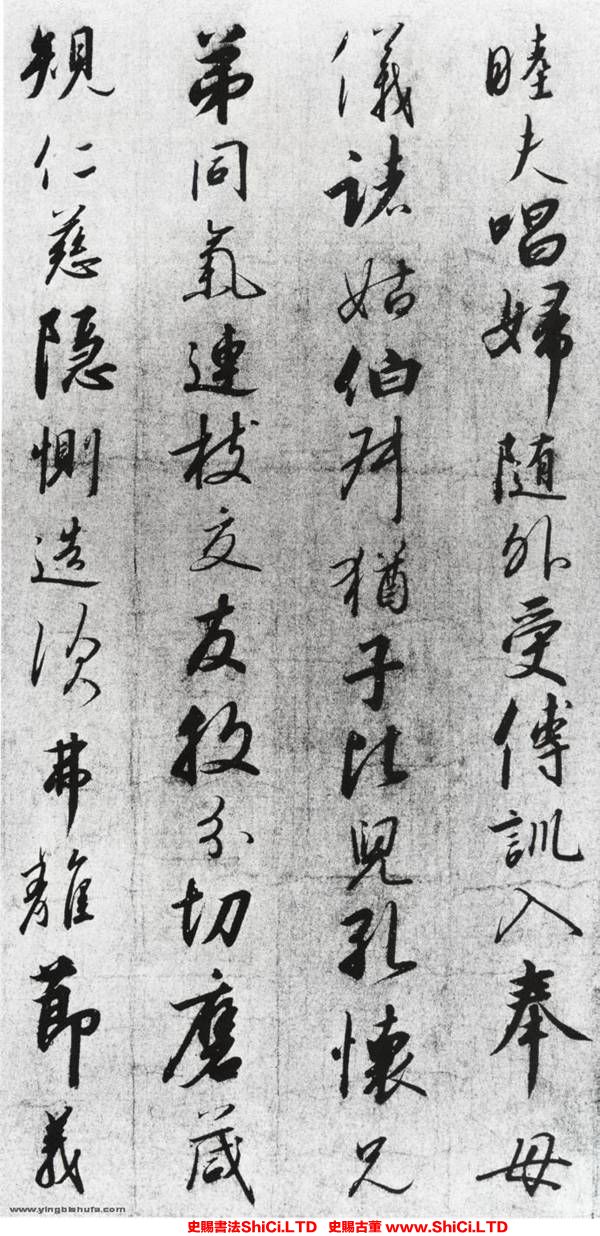 睦夫唱婦随外受傅訓入奉母
儀諸姑伯叔猶子比兒孔懷兄
弟同氣連枝交友投分切磨箴
規仁慈隱惻造次弗離節義
www.yingbishufa.com
史賜書法ShiCi.LTD 史賜古董 www.ShiCi.LTD